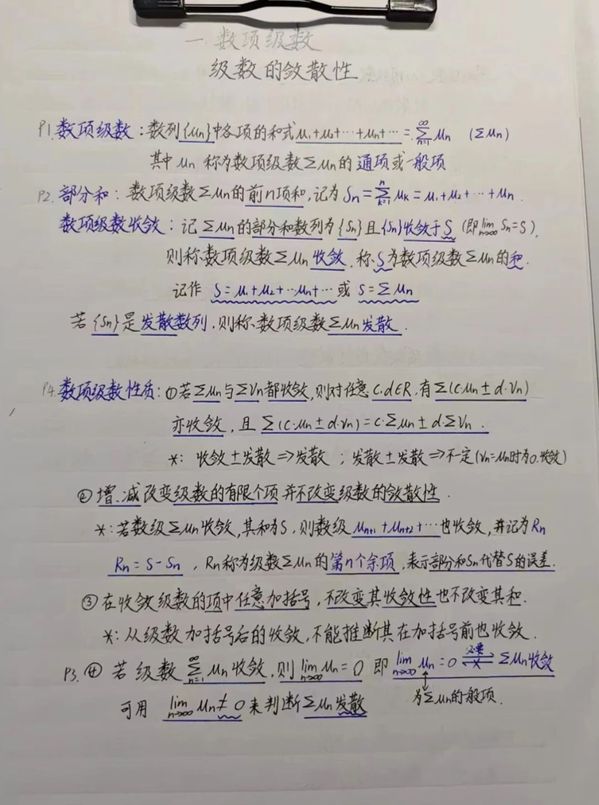 一.数项级数
级数的敛散性
P1.数项级数:数列{un}中各项的和式u1+u2+…+un+…=∑_{n=1}^{∞}un (∑un)
其中un称为数项级数∑un的通项或一般项
P2.部分和:数项级数∑un的前n项和,记为Sn=∑_{k=1}^{n}uk=u1+u2+…+un.
数项级数收敛:记∑un的部分和数列为{Sn}且{Sn}收敛于S(即lim_{n→∞}Sn=S).
则称数项级数∑un收敛.称S为数项级数∑un的和.
记作 S=u1+u2+…un+…或S=∑un
若{Sn}是发散数列,则称数项级数∑un发散.
P4.数项级数性质:①若∑un与∑vn都收敛,则对任意c.d∈R,有∑(c·un±d·vn)
亦收敛,且∑(c·un±d·vn)=c·∑un±d·∑vn.
*:收敛±发散⇒发散;发散±发散⇒不定(vn=un时为0.收敛)
②增.减改变级数的有限个项并不改变级数的敛散性.
*:若数级∑un收敛,其和为S,则数级un+1+un+2+…也收敛,并记为Rn
Rn=S-Sn,Rn称为级数∑un的第n个余项,表示部分和Sn代替S的误差.
③在收敛级数的项中任意加括号,不改变其收敛性也不改变其和.
*:从级数加括号后的收敛,不能推断其在加括号前也收敛.
P3.④若级数∑_{n=1}^{∞}un收敛,则lim_{n→∞}un=0 即lim_{n→∞}un=0 ⇌ ∑un收敛
可用 lim_{n→∞}un≠0来判断∑un发散 为∑un的一般项.